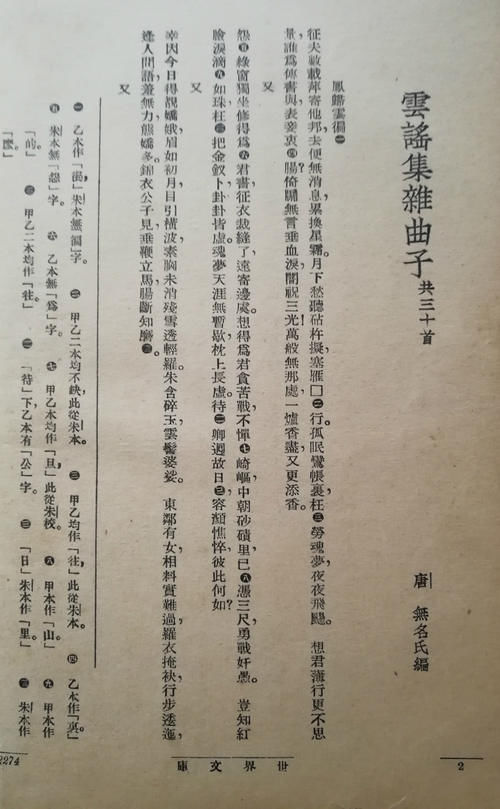 雲謠集雜曲子 共三十首
唐 無名氏編
鳳歸雲徧㊀
征夫數載，萍寄他邦。去便無消息，累換星霜。月下愁聽砧杵，擬塞雁□㊁行。孤眠鸞帳裏，枉㊂勞魂夢，夜夜飛颺。 想君薄行，更不思
量。誰爲傳書與，表妾衷㊃腸？倚牖無言垂血淚，闇祝三光。萬般無那處，一爐香盡，又更添香。
又
怨㊄綠窗獨坐，修得爲㊅君書。征衣裁縫了，遠寄邊虞。想得爲君貪苦戰，不憚㊆崎嶇。中朝沙磧里，已㊇憑三尺，勇戰奸愚。 豈知紅
臉，淚滴㊈如珠。枉㊀把金釵卜，卦卦皆虛。魂夢天涯無暫歇，枕上長虛。待㊁卿迴故日，㊂容顏憔悴，彼此何如？
又
幸因今日，得覩嬌娥。眉如初月，目引橫波。素胸未消殘雪，透輕羅。朱含碎玉，雲髻婆娑。 東鄰有女，相料實難過。羅衣掩袂，行步逶迤。
逢人問語羞無力，態嬌多。錦衣公子見，垂鞭立馬，腸斷知麼㊂。
又
㊀ 乙本作「漏」，朱本無「漏」字。 ㊁ 甲乙二本均不缺，此從朱本。 ㊂ 甲乙均作「往」，此從朱本。 ㊃ 乙本作「裏」。
㊄ 朱本無「怨」字。 ㊅ 乙本無「爲」字。 ㊆ 甲乙本均作「旦」，此從朱校。 ㊇ 甲本作「山」。 ㊈ 甲本作
「的」。 ㊀ 甲乙二本均作「往」。 ㊁「待」下，乙本有「公」字。 ㊂「日」朱本作「里」。 ㊂ 朱本作
「麽」。
世界文庫
2
2274